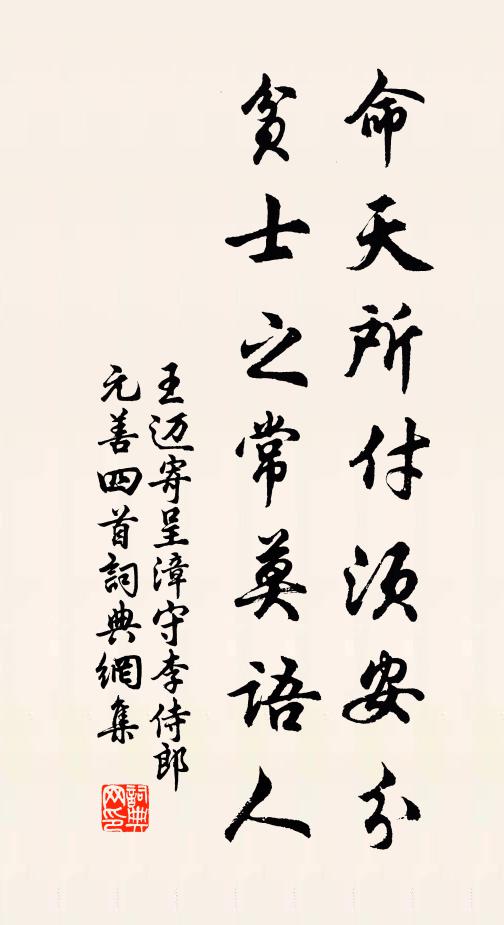 命天所付须安分
貧士之常莫語人
王迈寄呈漳守李侍郎
元善四首詞典網集
詞典网印